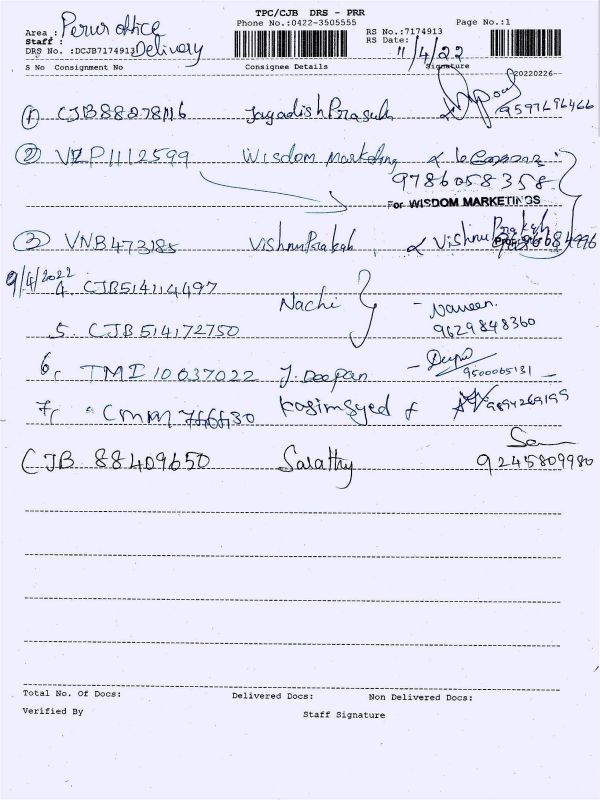 TPC/CJB DRS - PRR
Phone No.:0422-3505555
Page No.:1
Area : Perur office
Staff : Delivery
DRS No. :DCJB7174913
RS No.:7174913
RS Date: 11/4/22
S No Consignment No Consignee Details Signature
20220226
1 CJB88278116 Jagadish Prasath 9597696466
2 VLP1112599 Wisdom Marketing
9786058358
For WISDOM MARKETINGS
3 VNB473185 Vishnu Prakash Vishnu Prakash
9/4/2022
4. CJB514114497
Nachi Naveen.
5. CJB514172750 9629848360
6, TMI 10037022 J. Deepan 9500065131
7, CMM Kasimsyed 9894269199
CJB 88409650 Sarathy 9245809980
Total No. Of Docs: Delivered Docs: Non Delivered Docs:
Verified By Staff Signature